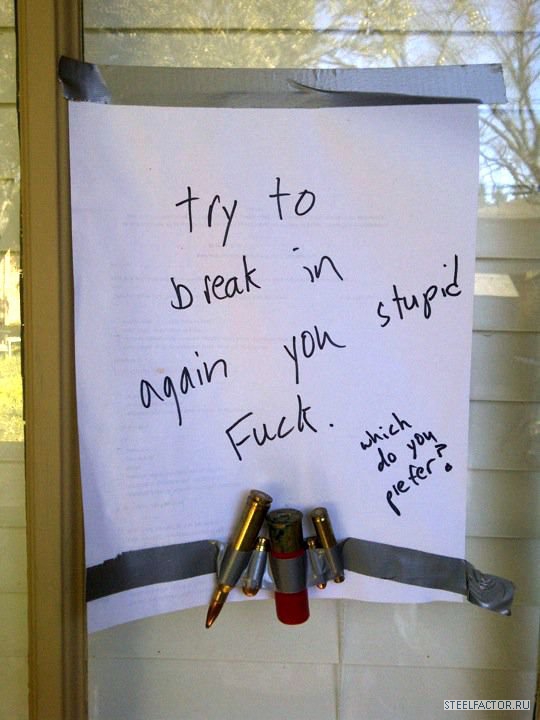 try to
break in
again you stupid
Fuck.
which
do you
prefer?
STEELFACTOR.RU